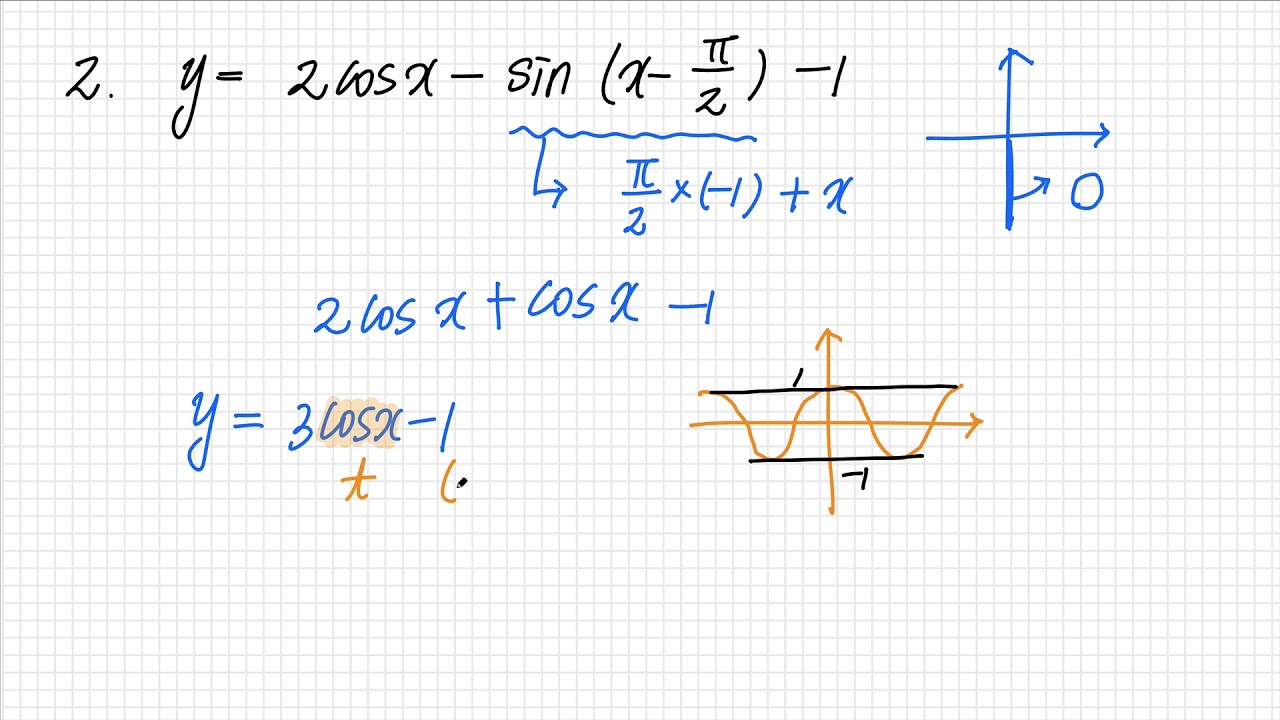 2. y = 2cosx - sin (x - π/2) - 1
π/2 × (-1) + x
0
2cosx + cosx - 1
y = 3cosx - 1
t (
1
-1